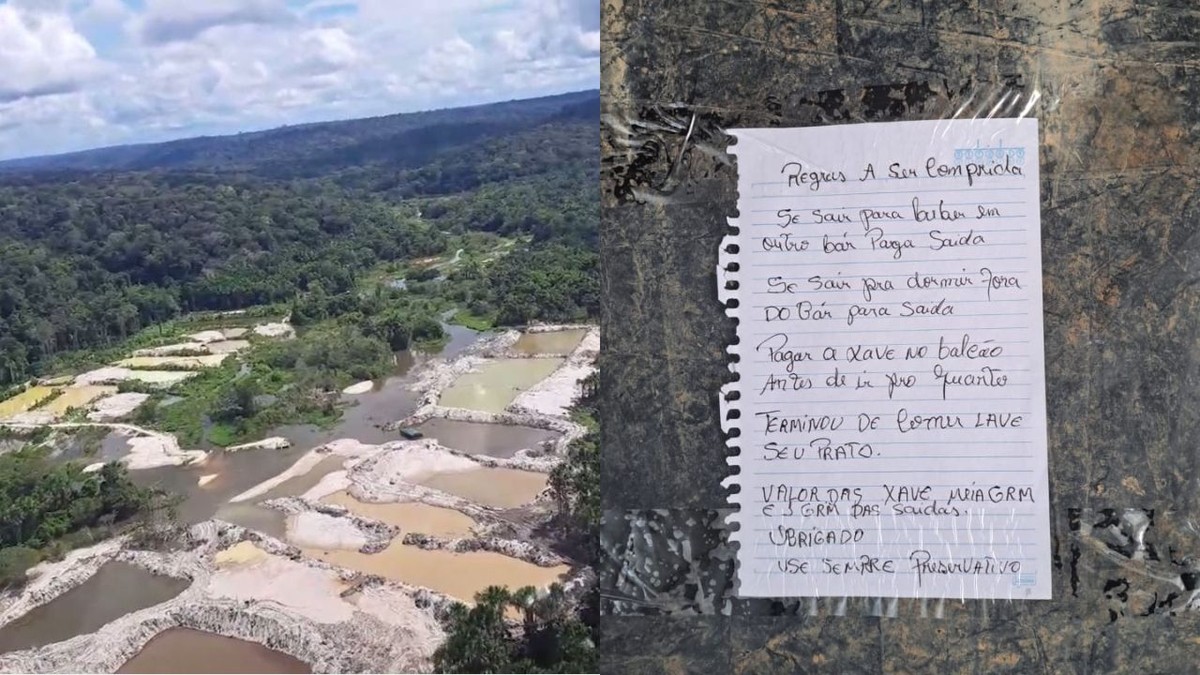 Regras A Ser Comprida
Se Sair para beber em
outro bár Paga Saida
Se Sair pra dormir fora
DO Bár para Saida
Pagar a XAVE NO balcão
Antes de ir pro quanto
TERMINOU DE Comer LAVE
SEU PRATO.
VALOR DAS XAVE MEIA GRM
E 1 GRM DAS Saidas.
OBRIGADO
USE SEMPRE Preservativo